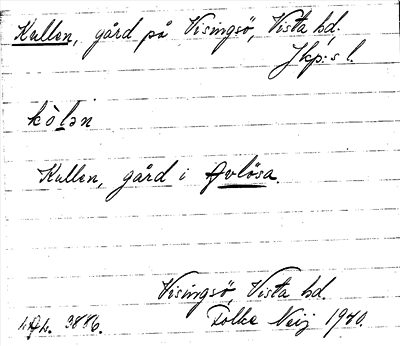 Kullen, gård på Visingsö, Vista hd.
Jkp:s l.
kòlən
Kullen, gård i Avlösa.
Visingsö, Vista hd.
3886. Folke Neij 1940.